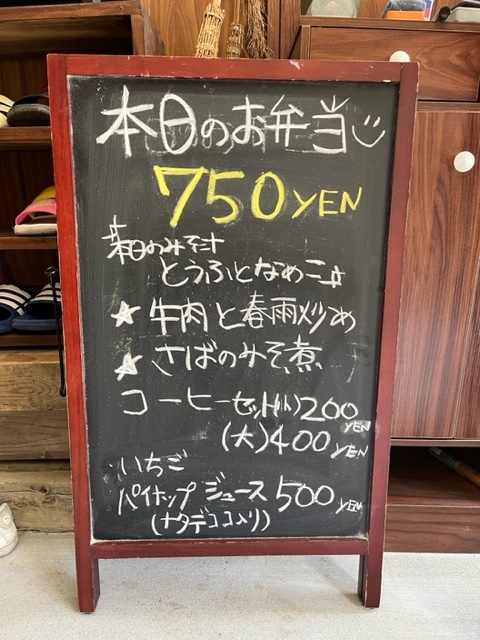 本日のお弁当
750YEN
本日のみそ汁
とうふとなめこ
★ 牛肉と春雨炒め
★ さばのみそ煮
コーヒーセット(小)200YEN
(大)400YEN
いちご
パイホップ ジュース 500YEN
(ナタデココ入り)